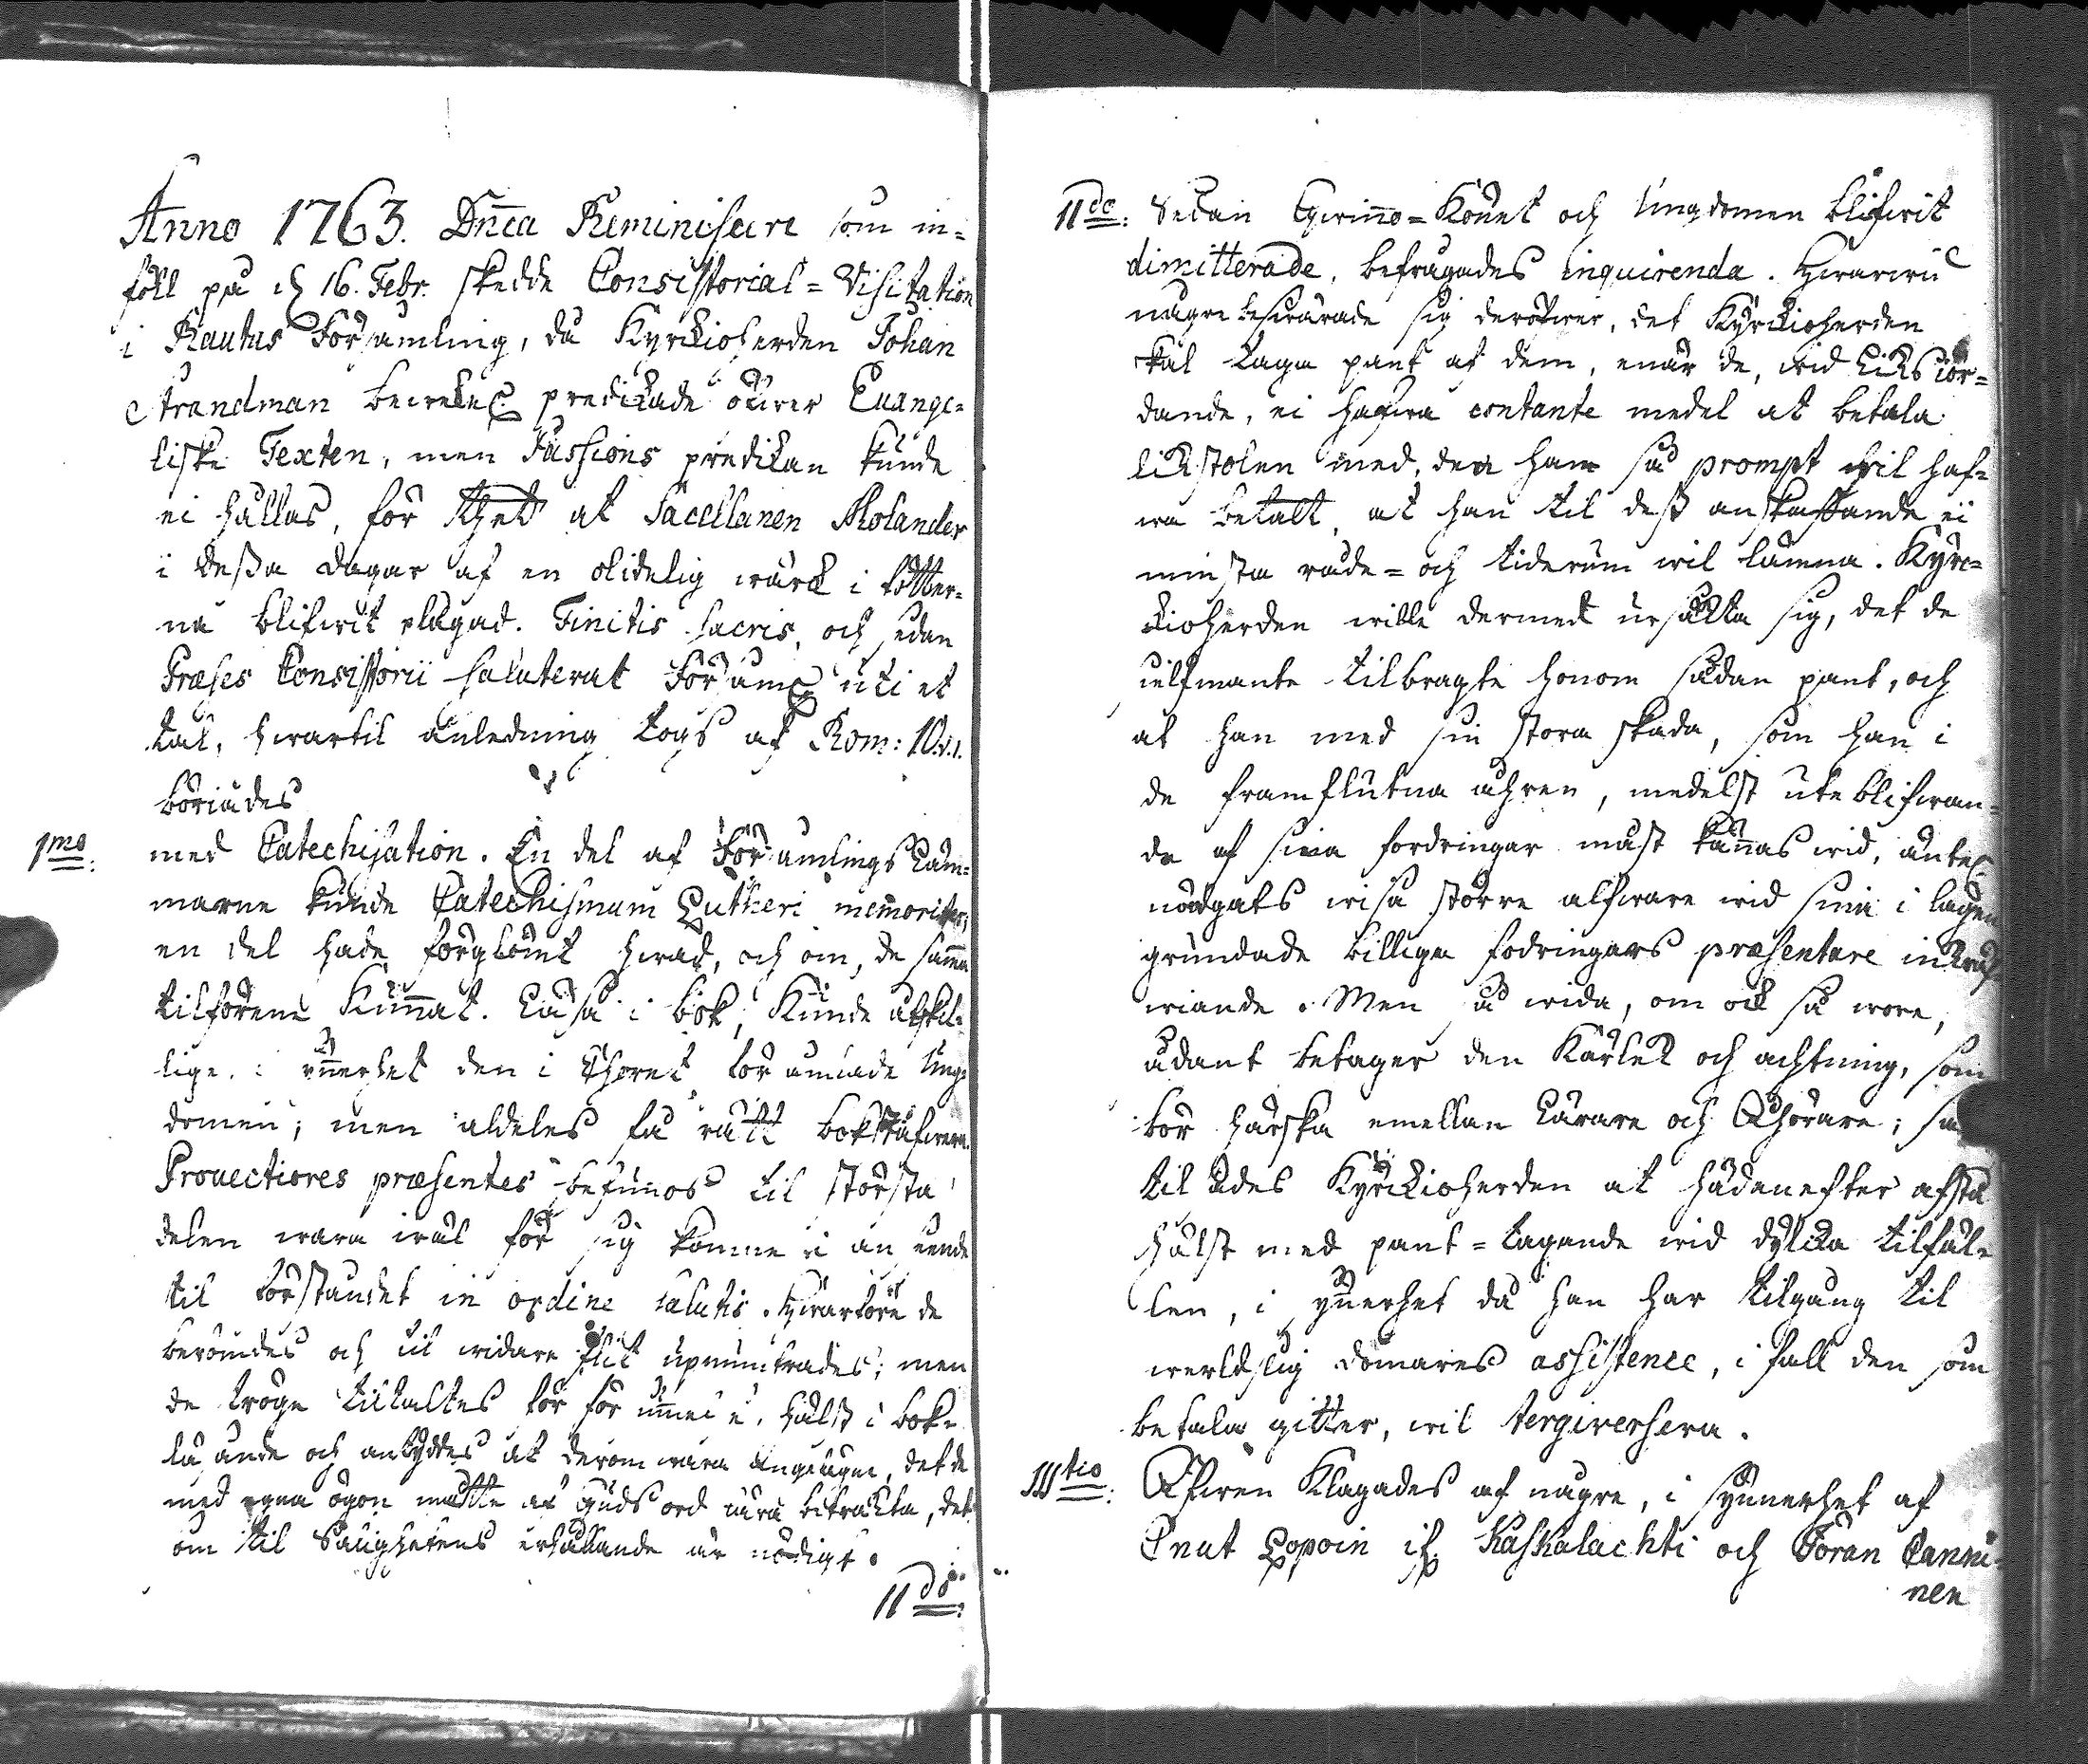 Anno 1763. Dn̄ca Reminiscere som in=
föll på d 16. Febr. skedde Consistorial=Visitation
i Rautus Församling, då Kyrckioherden Johan
Strandman predikade öfwer Euange-
liske Texten, men Passions predikan kunde
ei hållas, för thet at Sacellanen Molander
i dessa dagar af en olidelig wärck i fötter-
na blifwit plågad. Finitis sacris, och sedan
Præses Consistorii saluterat Församl uti et
tal, hwartil anledning togs af Rom: 10.v.1.
börjades
1mo: med Catechisation. En del af Församlings Lem-
marne kunde Catechismum Lutheri memoriter,
en del hade förglömt hwad, och om, de samma
tilförene kunnat. Läsa i bok, kunde åtskil-
lige, i synnerhet den i Choret församlade Ung-
domen; men aldeles få rätt bokstafwera.
Provectiores præsentes befunos til största
delen wara wäl för sig komne i anseende
til förståndet in ordine salutis. Hwarföre de
berömdes och til widare flit upmuntrades; men
de tröge tiltaltes för försummelse, hälst i bok-
läsande och antyddes at derom wara angelägne, det de
med egna ögon måtte af Guds ord nära betrakta, det
som til Salighetens erhållande är nödigt.
IIdo:
IIdo: Sedan Qwinno=Könet och Ungdomen blifwit
dimitterade, befrågades inquirenda. Hwarwid
någre beswärade sig deröfwer, det Kyrckioherden
skal taga pant af dem, enär de, wid Liks jor-
dande, ei hafwa contante medel at betala
likstolen med, den han så prompt wil haf-
wa betalt, at han til dess anskaffande ei
minsta råde=och tiderum wil lämna. Kyrc-
kioherden wille dermed ursäkta sig, det de
sielfmante tilbragte honom sådan pant, och
at han med sin stora skada, som han i
de framflutna åhren, medelst uteblifwan-
de af sina fordringar måst kännas wid,
nödgats wisa större alfware wid sina i lagen
grundade billiga fodringars præsentare inkräf
wiande. Men så wida, om ock så wore,
sådant betager den Kärlek och achtning, som
bör härska emellan Lärare och Åhörare; så
tilsades Kyrckioherden at hädanefter afstå
hälst med pant=tagande wid dylika tilfäl-
len, i synnerhet då han har tilgång til
werldslig domares assistence, i fall den som
betala gitter, wil tergiversera.
IIItio: Äfwen klagades af någre, i synnerhet af
Cnut Lopoin if Kaskalachti och Göran Canni-
nen